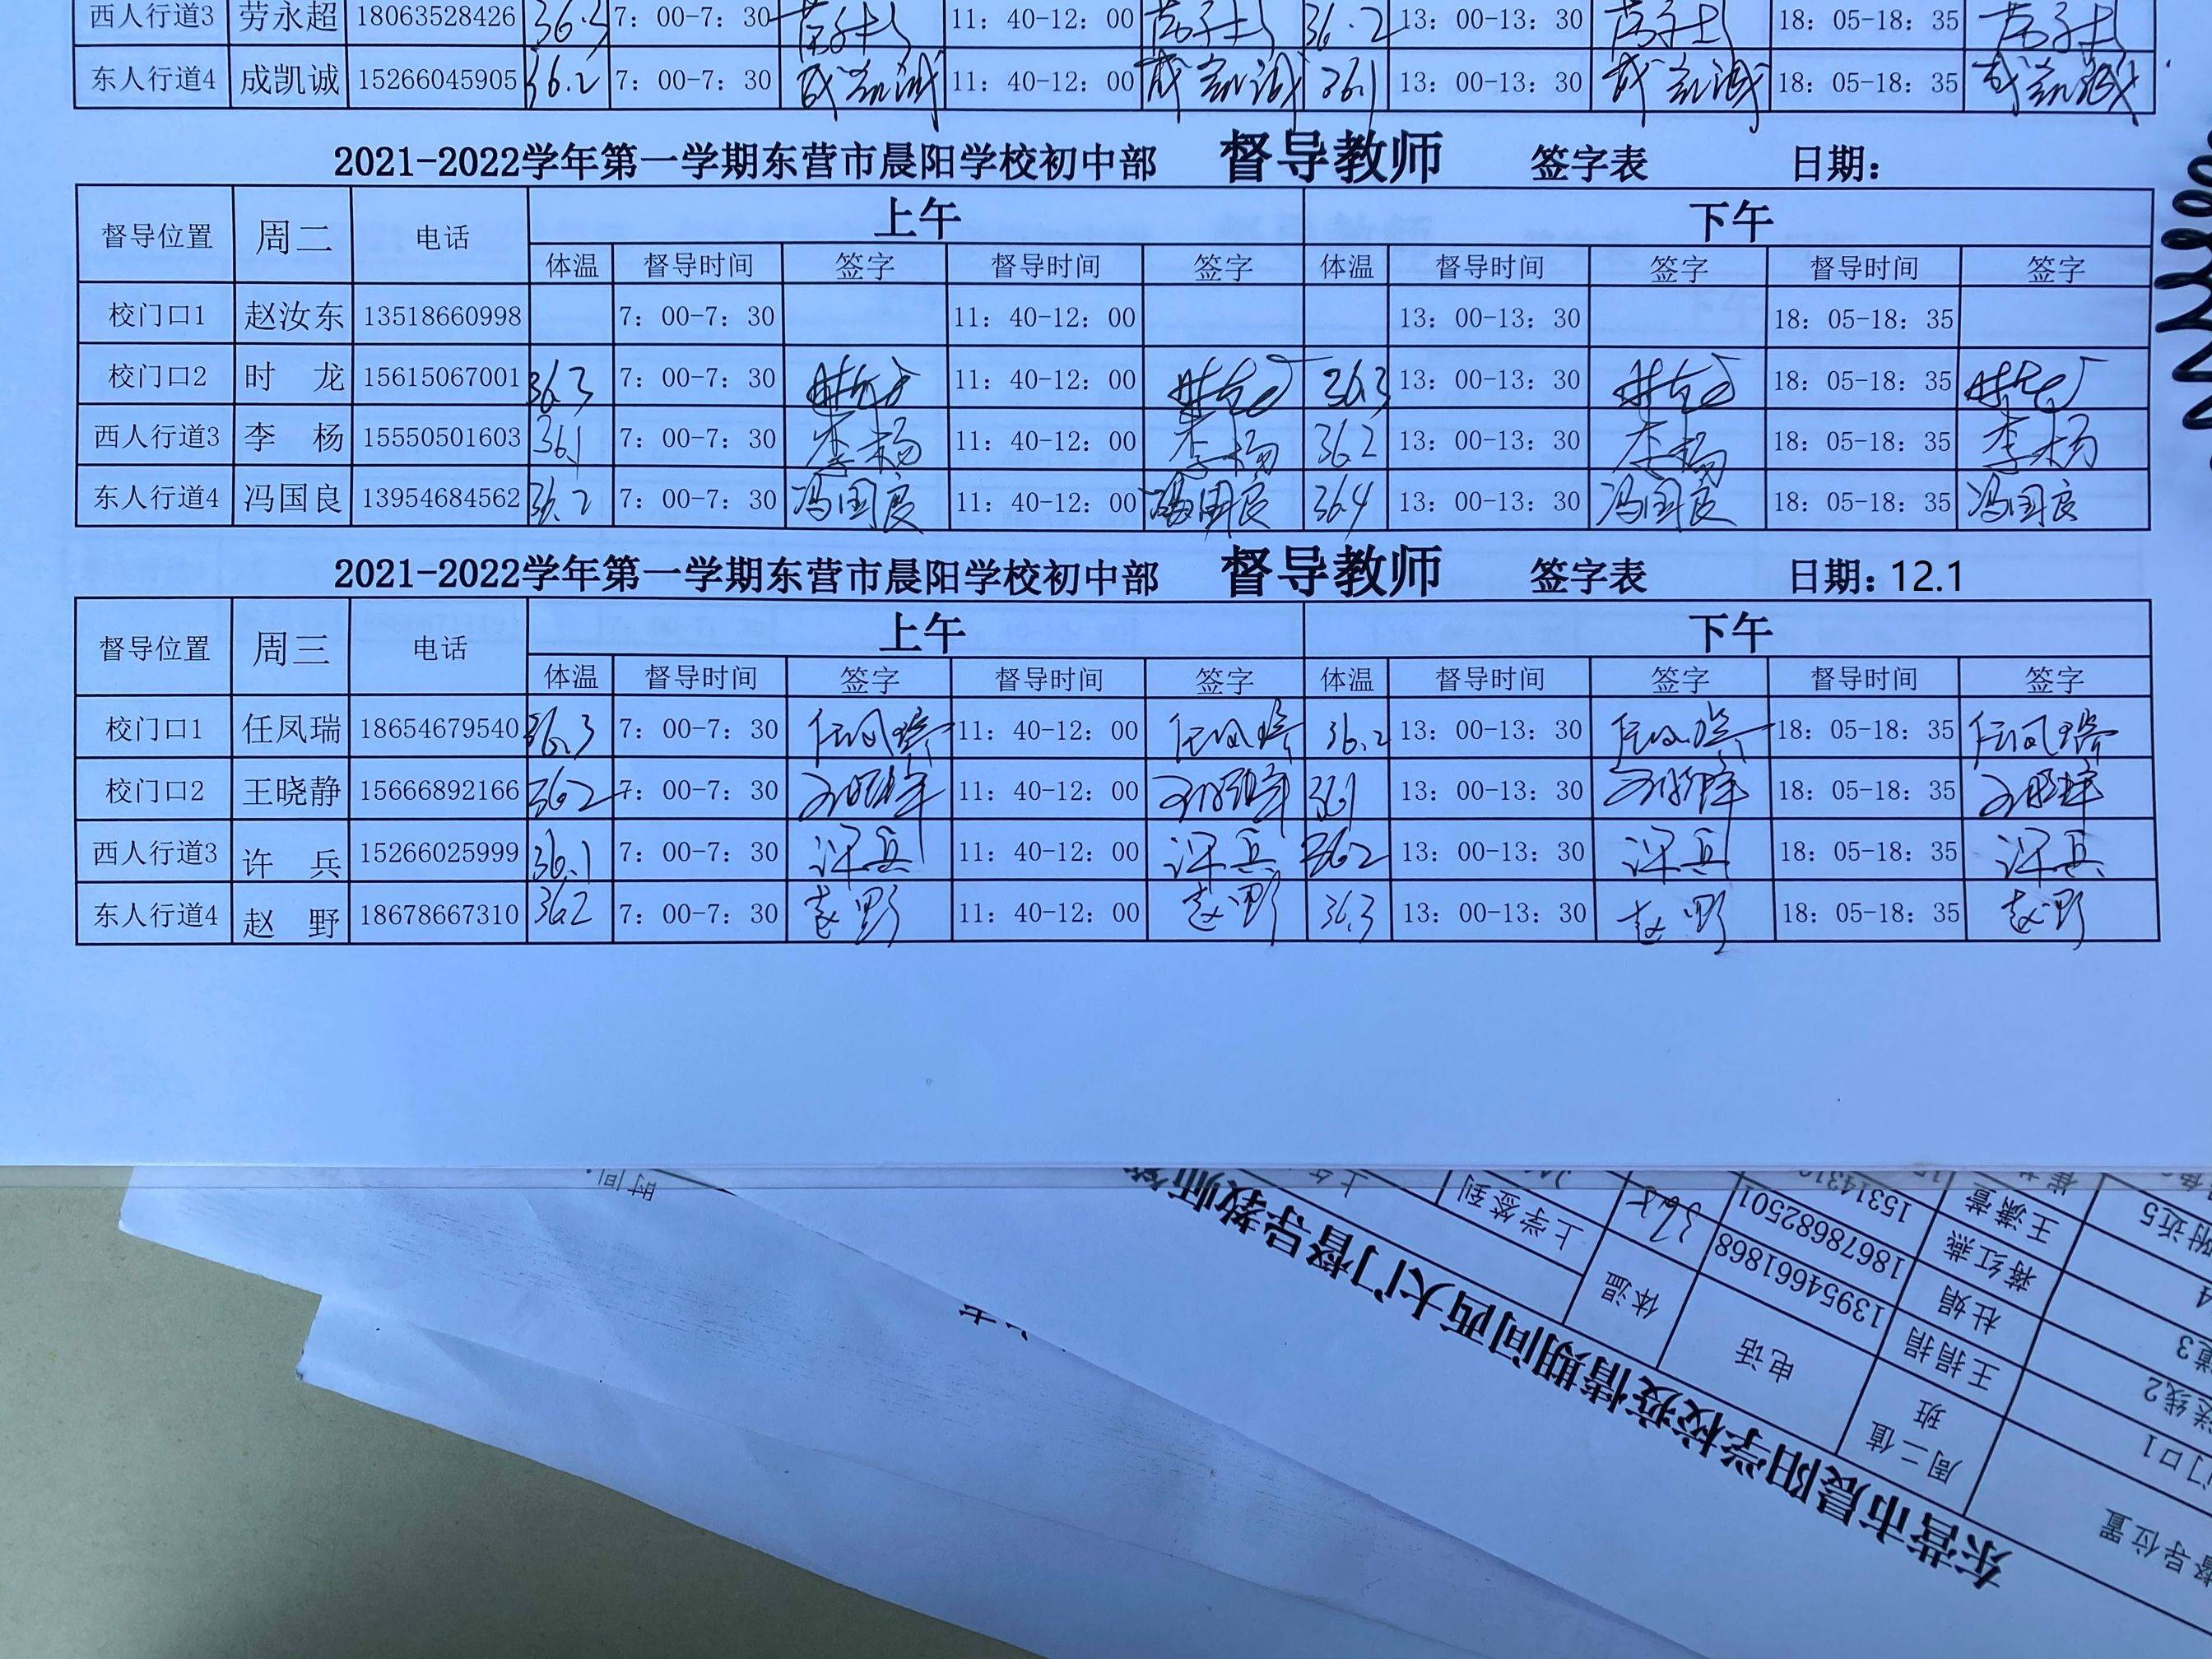 西人行道3 劳永超 18063528426 36.3 7：00-7：30 11：40-12：00 36.2 13：00-13：30 18：05-18：35
东人行道4 成凯诚 15266045905 36.2 7：00-7：30 成凯诚 11：40-12：00 成凯诚 36.1 13：00-13：30 成凯诚 18：05-18：35 成凯诚
2021-2022学年第一学期东营市晨阳学校初中部 督导教师 签字表 日期：
督导位置 周二 电话 上午 下午
体温 督导时间 签字 督导时间 签字 体温 督导时间 签字 督导时间 签字
校门口1 赵汝东 13518660998 7：00-7：30 11：40-12：00 13：00-13：30 18：05-18：35
校门口2 时 龙 15615067001 36.3 7：00-7：30 时龙 11：40-12：00 时龙 36.3 13：00-13：30 时龙 18：05-18：35 时龙
西人行道3 李 杨 15550501603 36.1 7：00-7：30 李杨 11：40-12：00 李杨 36.2 13：00-13：30 李杨 18：05-18：35 李杨
东人行道4 冯国良 13954684562 36.2 7：00-7：30 冯国良 11：40-12：00 冯国良 36.4 13：00-13：30 冯国良 18：05-18：35 冯国良
2021-2022学年第一学期东营市晨阳学校初中部 督导教师 签字表 日期：12.1
督导位置 周三 电话 上午 下午
体温 督导时间 签字 督导时间 签字 体温 督导时间 签字 督导时间 签字
校门口1 任凤瑞 18654679540 36.3 7：00-7：30 任凤瑞 11：40-12：00 任凤瑞 36.2 13：00-13：30 任凤瑞 18：05-18：35 任凤瑞
校门口2 王晓静 15666892166 36.2 7：00-7：30 王晓静 11：40-12：00 王晓静 36.1 13：00-13：30 王晓静 18：05-18：35 王晓静
西人行道3 许 兵 15266025999 36.1 7：00-7：30 许兵 11：40-12：00 许兵 36.2 13：00-13：30 许兵 18：05-18：35 许兵
东人行道4 赵 野 18678667310 36.2 7：00-7：30 赵野 11：40-12：00 赵野 36.3 13：00-13：30 赵野 18：05-18：35 赵野
东营市晨阳学校疫情期间西大门督导教师签
督导位置 周二值班 电话 体温 上学签到 上午
门口1 王捐捐 13954661868
送线2 杜娟 18678682501
道3 蒋红燕
4 王潇萱
附近5
时间